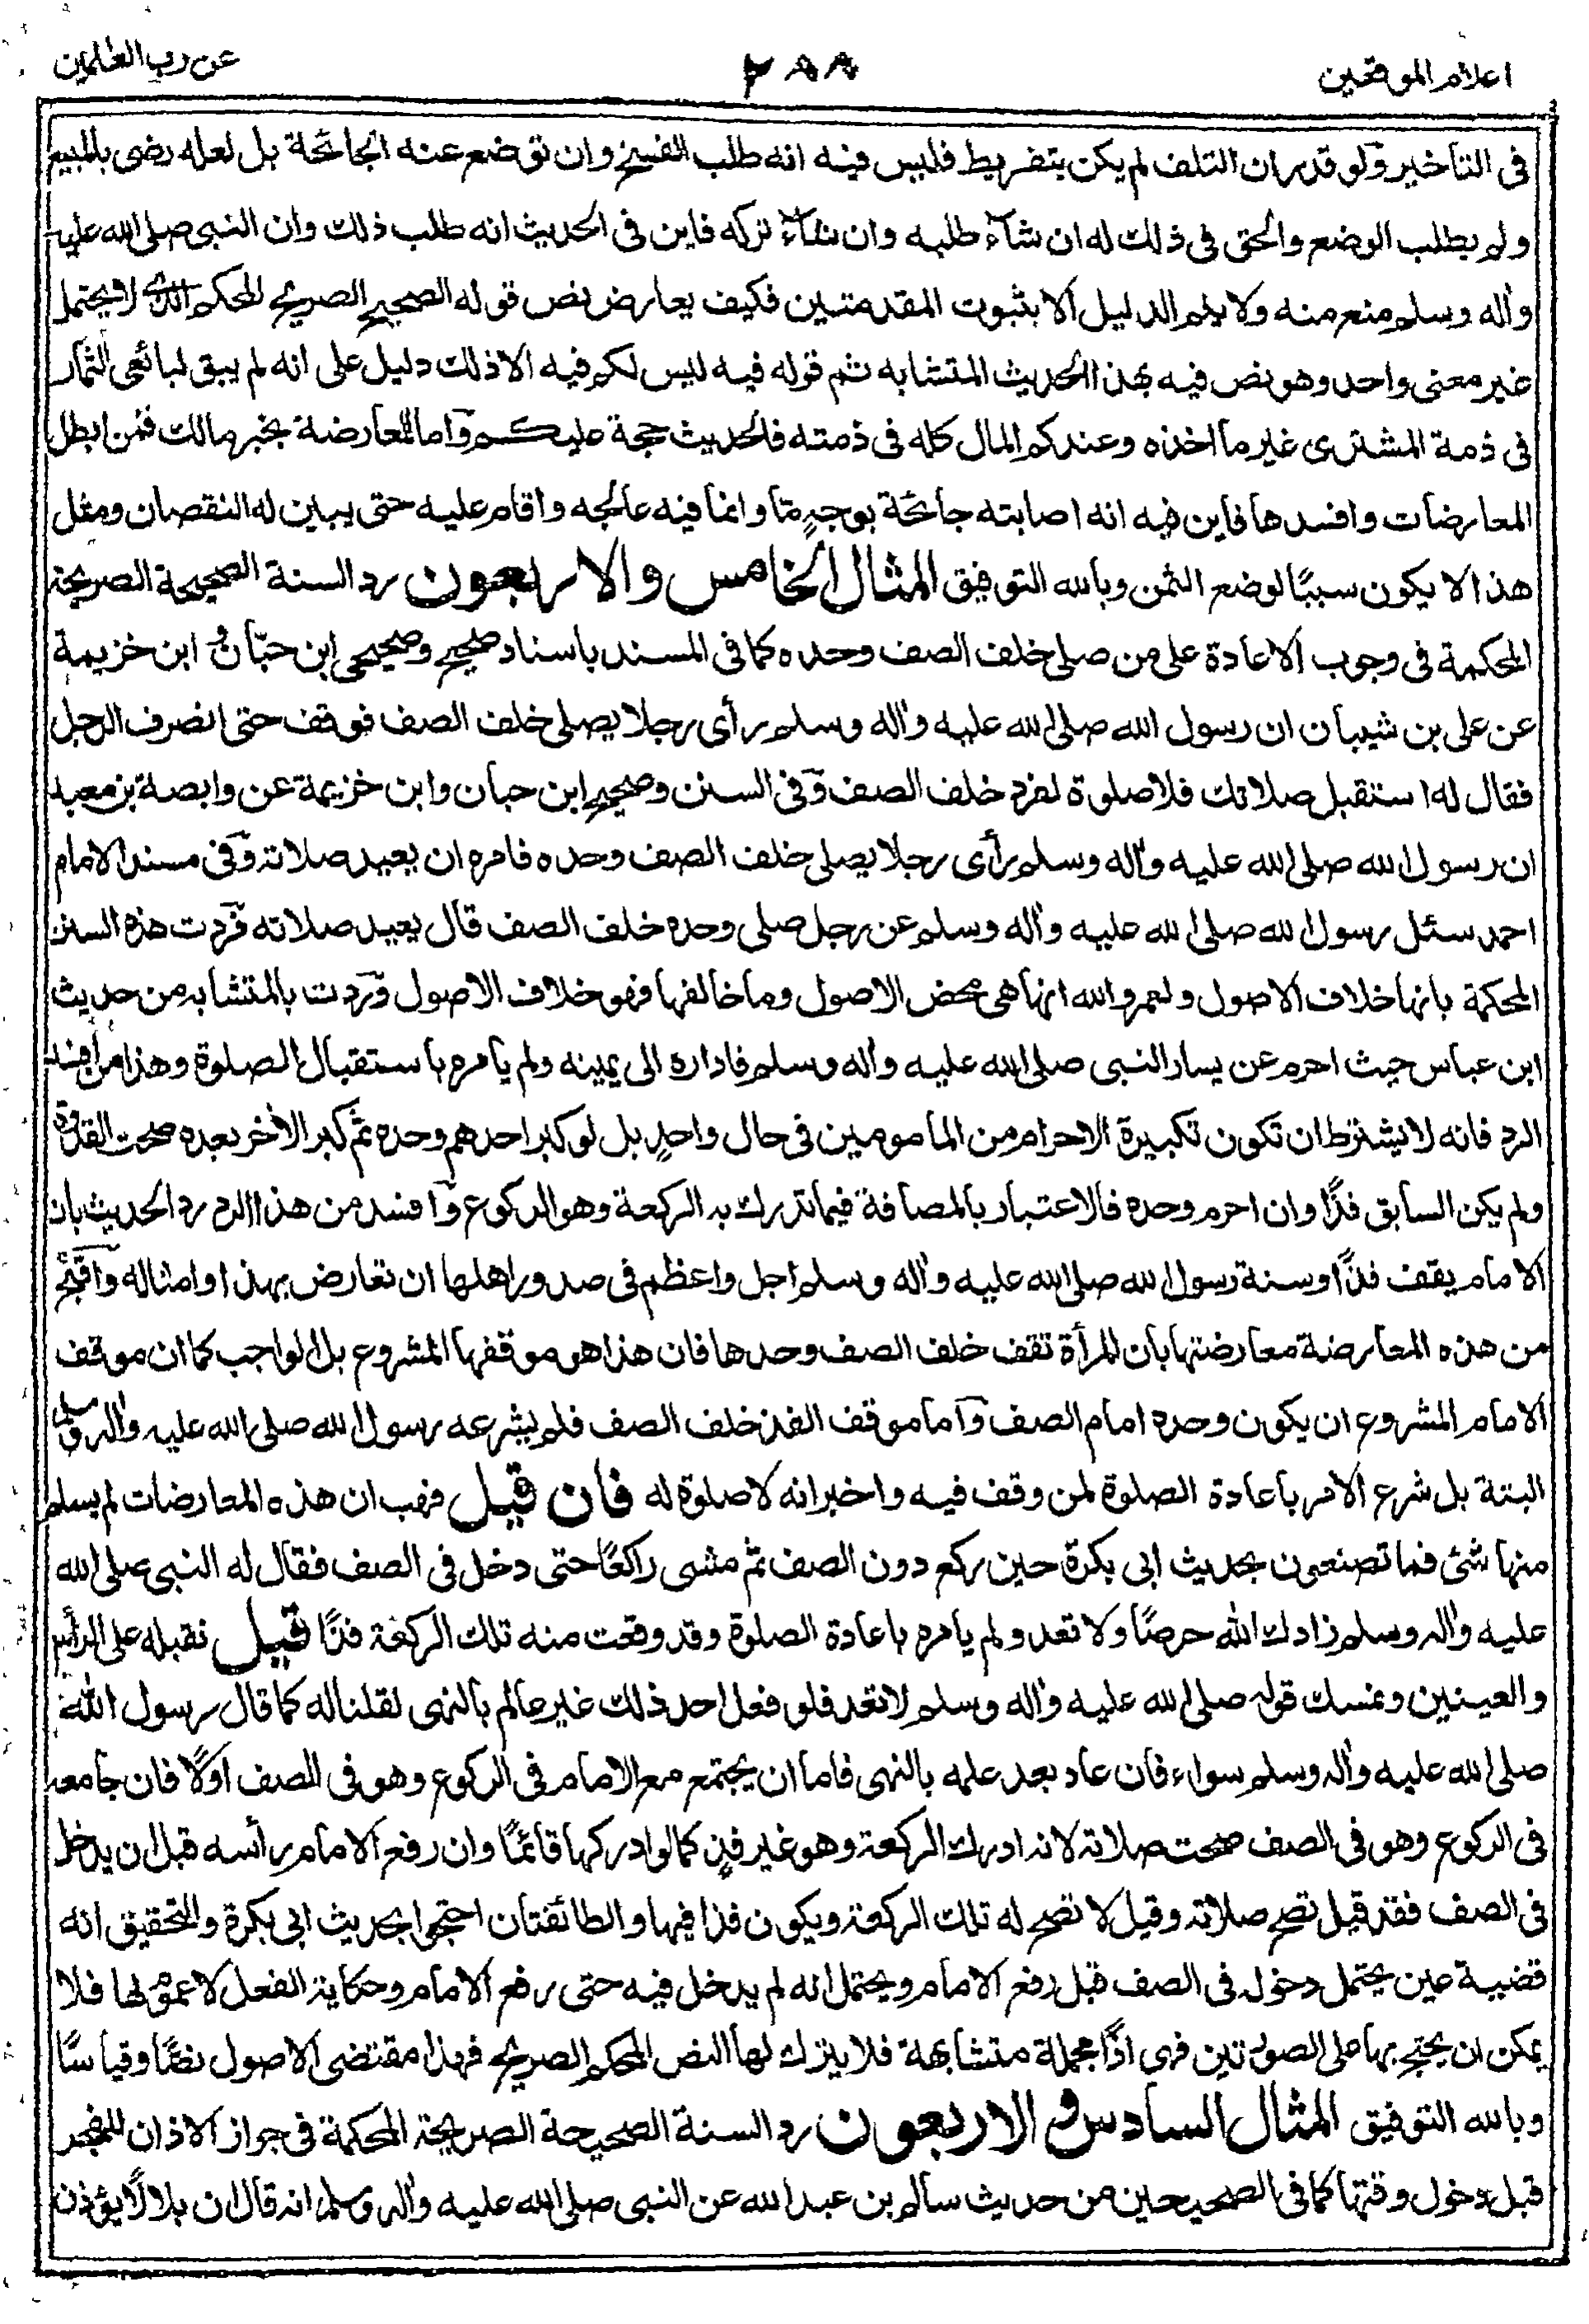 اعلام الموقعين
٢٨٨
عن رب العٰلمين
فى التاخير ولو قدر ان التلف لم يكن بتفريط فليس فيه انه طلب الفسخ وان توضع عنه الجائحة بل لعله رضى بالمبيع
ولم يطلب الوضع والحق فى ذلك له ان شآء طلبه وان شآء تركه فاين فى الحديث انه طلب ذلك وان النبى صلى الله عليه
واٰله وسلم منع منه ولا يتم الدليل الا بثبوت المقدمتين فكيف يعارض نص قوله الصحيح الصريح المحكم الذى لا يحتمل
غير معنى واحد وهو نص فيه بهذا الحديث المتشابه ثم قوله فيه ليس لكم فيه الا ذلك دليل على انه لم يبق لبائعى الثمار
فى ذمة المشترى غير ما اخذه وعندكم المال كله فى ذمته فالحديث حجة عليكم وآما المعارضة بخبر مالك فمن ابطل
المعارضات وافسدها فاين فيه انه اصابته جائحة بوجهٍ مّا وانما فيه عالجه واقام عليه حتى يبين له النقصان ومثل
هذا لا يكون سببًا لوضع الثمن وبالله التوفيق المثال الخامس والاربعون رد السنة الصحيحة الصريحة
المحكمة فى وجوب الاعادة على من صلى خلف الصف وحده كما فى المسند باسناد صحيح وصحيحى ابن حبّان و ابن خزيمة
عن على بن شيبان ان رسول الله صلى الله عليه واٰله وسلم رأى رجلا يصلى خلف الصف فوقف حتى انصرف الرجل
فقال له استقبل صلاتك فلا صلوة لفرد خلف الصف وفى السنن وصحيح ابن حبان وابن خزيمة عن وابصة بن معبد
ان رسول الله صلى الله عليه واٰله وسلم رأى رجلا يصلى خلف الصف وحده فامره ان يعيد صلاته وفى مسند الامام
احمد سئل رسول الله صلى الله عليه واٰله وسلم عن رجل صلى وحده خلف الصف قال يعيد صلاته فردت هذه السنن
المحكمة بانها خلاف الاصول ولعمر والله انها هى محض الاصول وما خالفها فهو خلاف الاصول وردت بالمتشابه من حديث
ابن عباس حيث احرم عن يسار النبى صلى الله عليه واٰله وسلم فاداره الى يمينه ولم يامره باستقبال الصلوة وهذا من افسد
الرد فانه لا يشترط ان تكون تكبيرة الاحرام من المامومين فى حال واحدٍ بل لو كبر احدهم وحده ثم كبر الاٰخر بعده صحت القدوة
ولم يكن السابق فذًّا وان احرم وحده فالاعتبار بالمصافة فيما تدرك به الركعة وهو الركوع وآفسد من هذا الرد رد الحديث بان
الامام يقف فذًّا وسنة رسول الله صلى الله عليه واٰله وسلم اجل واعظم فى صدور اهلها ان تعارض بهذا وامثاله وآقبح
من هذه المعارضة معارضتها بان المرأة تقف خلف الصف وحدها فان هذا هو موقفها المشروع بل الواجب كما ان موقف
الامام المشروع ان يكون وحده امام الصف وآما موقف الفذ خلف الصف فلم يشرعه رسول الله صلى الله عليه واٰله وسلم
البتة بل شرع الامر باعادة الصلوة لمن وقف فيه واخبر انه لا صلوة له فان قيل فهب ان هذه المعارضات لم يسلم
منها شئ فما تصنعون بحديث ابى بكرة حين ركع دون الصف ثم مشى راكعًا حتى دخل فى الصف فقال له النبى صلى الله
عليه واٰله وسلم زادك الله حرصًا ولا تعد ولم يامره باعادة الصلوة وقد وقعت منه تلك الركعة فذًّا قيل نقبله على الرأس
والعينين ونمسك قوله صلى الله عليه واٰله وسلم لا تعد فلو فعل احد ذلك غير عالم بالنهى لقلنا له كما قال رسول الله
صلى الله عليه واٰله وسلم سواء فان عاد بعد علمه بالنهى فاما ان يجتمع مع الامام فى الركوع وهو فى الصف اولًا فان جامعه
فى الركوع وهو فى الصف صحت صلاته لانه ادرك الركعة وهو غير فذٍ كما لو ادركها قائمًا وان رفع الامام رأسه قبل ان يدخل
فى الصف فقد قيل تصح صلاته وقيل لا تصح له تلك الركعة ويكون فذا فيها والطائفتان احتجوا بحديث ابى بكرة والتحقيق انه
قضية عين يحتمل دخوله فى الصف قبل رفع الامام ويحتمل انه لم يدخل فيه حتى رفع الامام وحكاية الفعل لا عموم لها فلا
يمكن ان يحتج بها على الصورتين فهى اذًا مجملة متشابهة فلا يترك لها النص المحكم الصريح فهذا مقتضى الاصول نصًّا وقياسًا
وبالله التوفيق المثال السادس و الاربعون رد السنة الصحيحة الصريحة المحكمة فى جواز الاذان للفجر
قبل دخول وقتها كما فى الصحيحين من حديث سالم بن عبدالله عن النبى صلى الله عليه واٰله وسلم انه قال ان بلالًا يؤذن